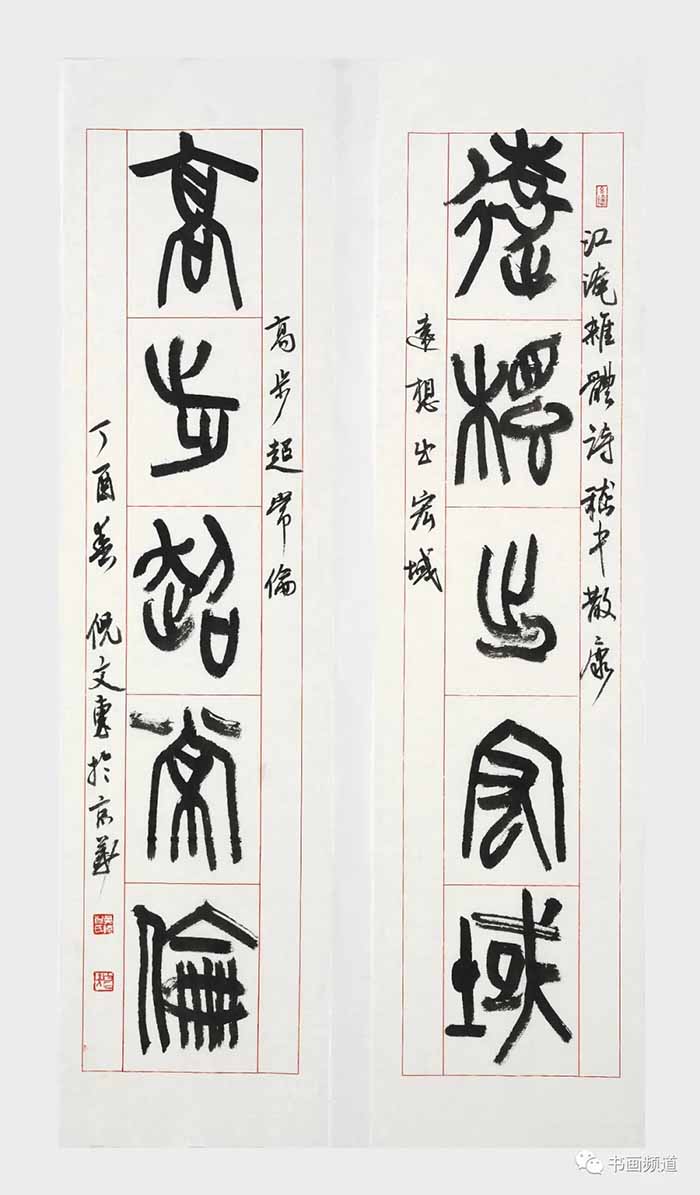 江淹雜體詩嵇中散康
遠想出宏域
遠想出宏域
高步超常倫
高步超常倫
丁酉春 倪文東於京華
书画频道